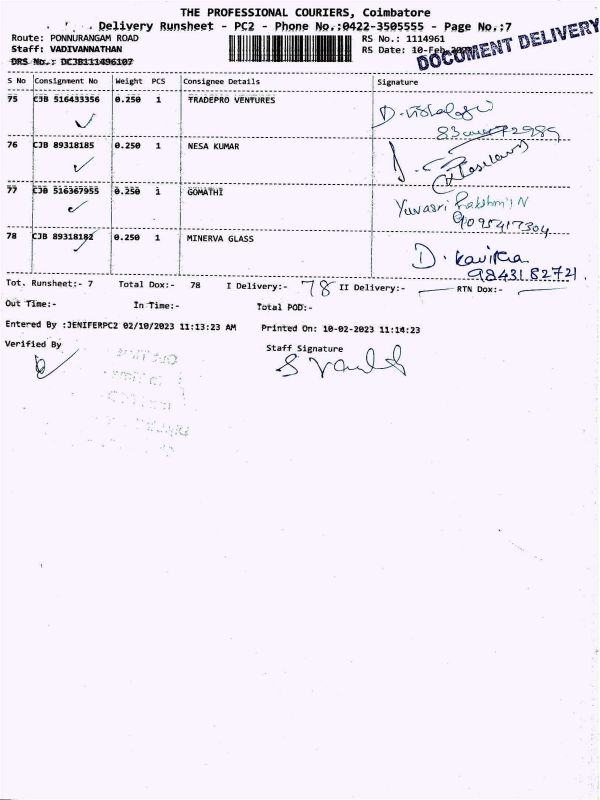 THE PROFESSIONAL COURIERS, Coimbatore
Delivery Runsheet - PC2 - Phone No.:0422-3505555 - Page No.:7
Route: PONNURANGAM ROAD RS No.: 1114961
Staff: VADIVANNATHAN RS Date: 10-Feb-2023
DRS No.: DCJB111496107 DOCUMENT DELIVERY
S No Consignment No Weight PCS Consignee Details Signature
75 CJB 516433356 0.250 1 TRADEPRO VENTURES
76 CJB 89318185 0.250 1 NESA KUMAR
77 CJB 516367955 0.250 1 GOMATHI Yuvasri Lakshmi N
9095417304
78 CJB 89318182 0.250 1 MINERVA GLASS D. Kavitha
9843182721.
Tot. Runsheet:- 7 Total Dox:- 78 I Delivery:- 78 II Delivery:- RTN Dox:-
Out Time:- In Time:- Total POD:-
Entered By :JENIFERPC2 02/10/2023 11:13:23 AM Printed On: 10-02-2023 11:14:23
Verified By Staff Signature